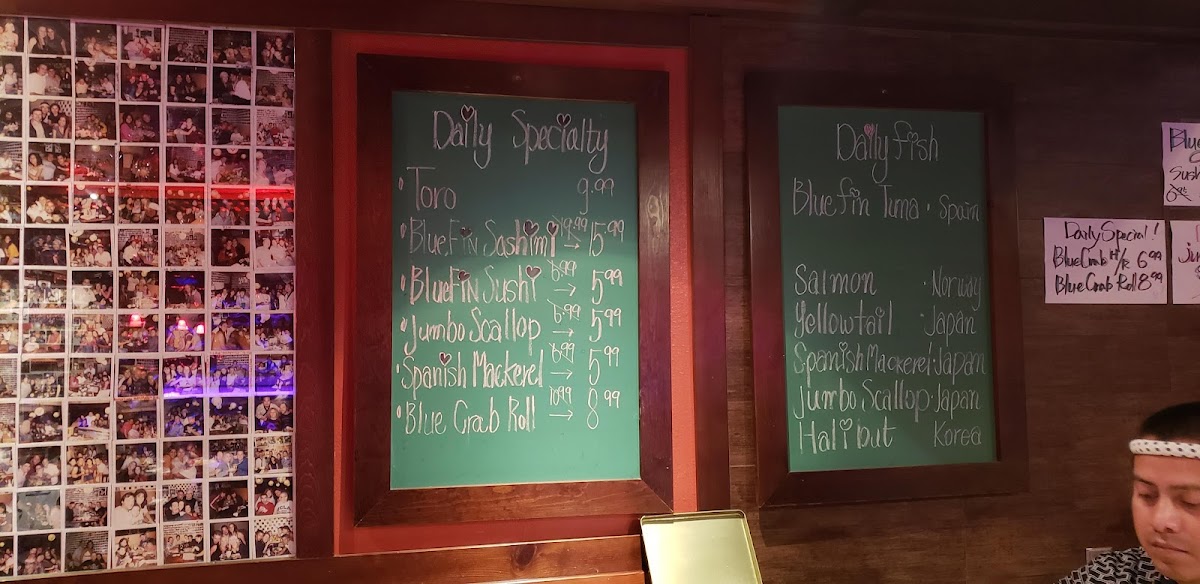 Daily Specialty
Toro 9.99
BlueFin Sashimi 19.99 → 15.99
BlueFin Sushi 6.99 → 5.99
Jumbo Scallop 6.99 → 5.99
Spanish Mackerel 6.99 → 5.99
Blue Crab Roll 10.99 → 8.99
Daily fish
Bluefin Tuna · Spain
Salmon · Norway
Yellowtail · Japan
Spanish Mackerel · Japan
Jumbo Scallop · Japan
Halibut Korea
Daily Special!
Blue Crab H/R 6.99
Blue Crab Roll 8.99